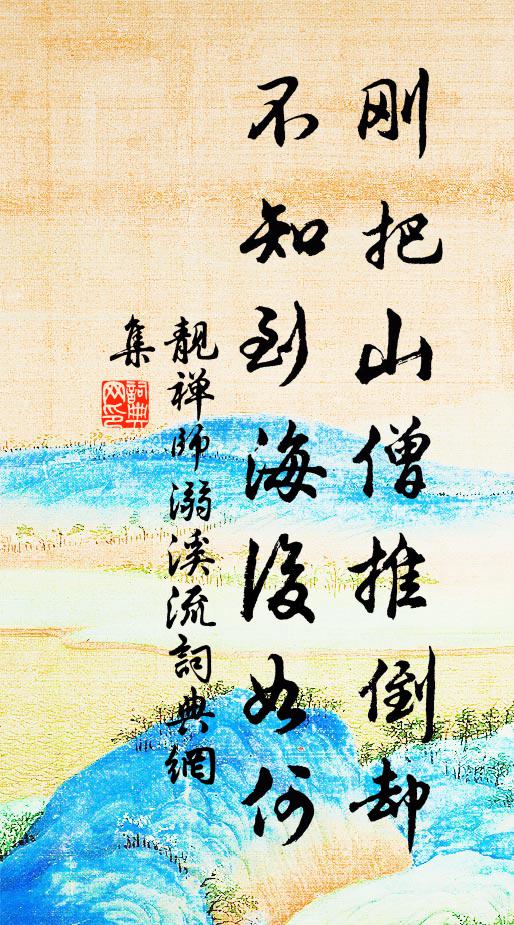 刚把山僧推倒却
不知到海後如何
靚禅師溺溪流詞典網
集
詞典
网印